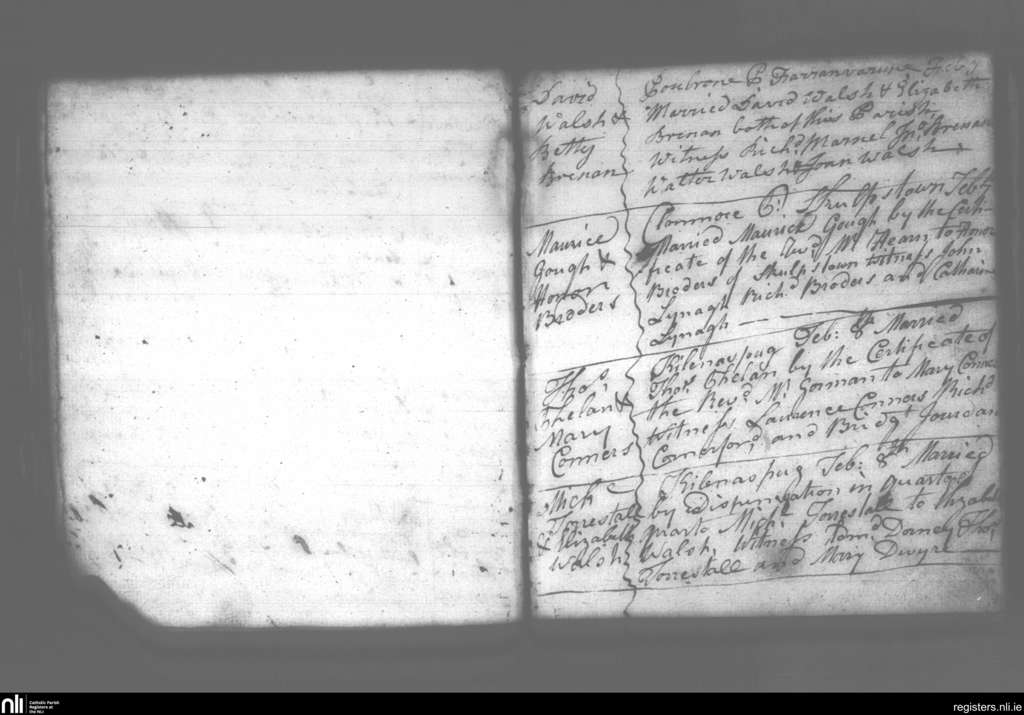 David
Walsh &
Betty
Brenan
Married David Walsh & Elizabeth
Brenan both of this Parish
Witness Rich.d Marnel Jn.o Brenan
Walter Walsh & Joan Walsh
Maurice
Gough &
Honor
Broders
Clonmore C.d Skulpstown Feb:
Married Maurice Gough by the Certi-
ficate of the Rev.d Mr. Hearn to Honor
Broders of Skulpstown Witness John
Lynagh Rich.d Broders and Catharine
Lynagh
Tho.s
Phelan &
Mary
Conners
Kilenaspug Feb: 8th Married
Tho.s Phelan by the Certificate of
the Rev.d Mr. Gorman to Mary Conners
Witness Laurence Conners Rich.d
Comerford and Bridg.t Jourdan
Mich
Forrestall
& Elizabeth
Walsh
Kilenaspug Feb: 8th Married
by Dispensation in quarto &
quarto Mich.l Forrestall to Elizabeth
Walsh, Witness Edm.d Dorney Tho.s
Forrestall and Mary Dwyre
nli
Catholic Parish
Registers at
the NLI
registers.nli.ie